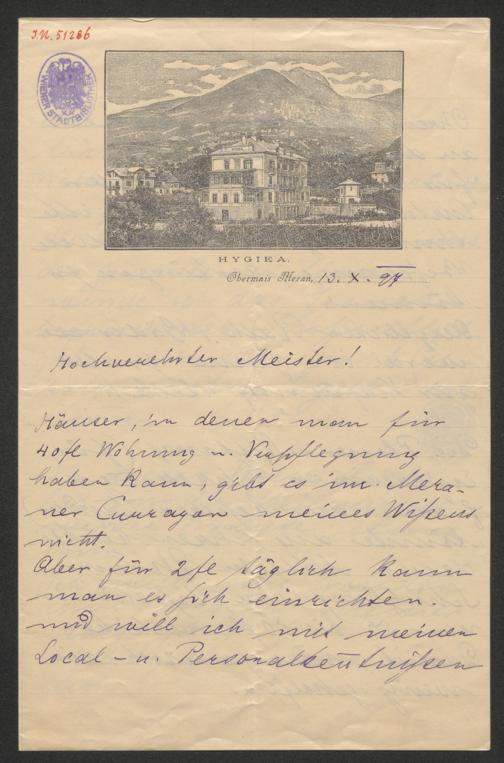 J.N. 51286
WIENER STADTBIBLIOTHEK
HYGIEA.
Obermais Meran, 13. X. 97
Hochverehrter Meister!
Häuser, in denen man für
40 fl Wohnung u. Verpflegung
haben kann, gibt es im Mera-
ner Currayon meines Wißens
nicht.
Aber für 2 fl täglich kann
man es sich einrichten.
und will ich mit meinen
Local- u. Personalkentnißen